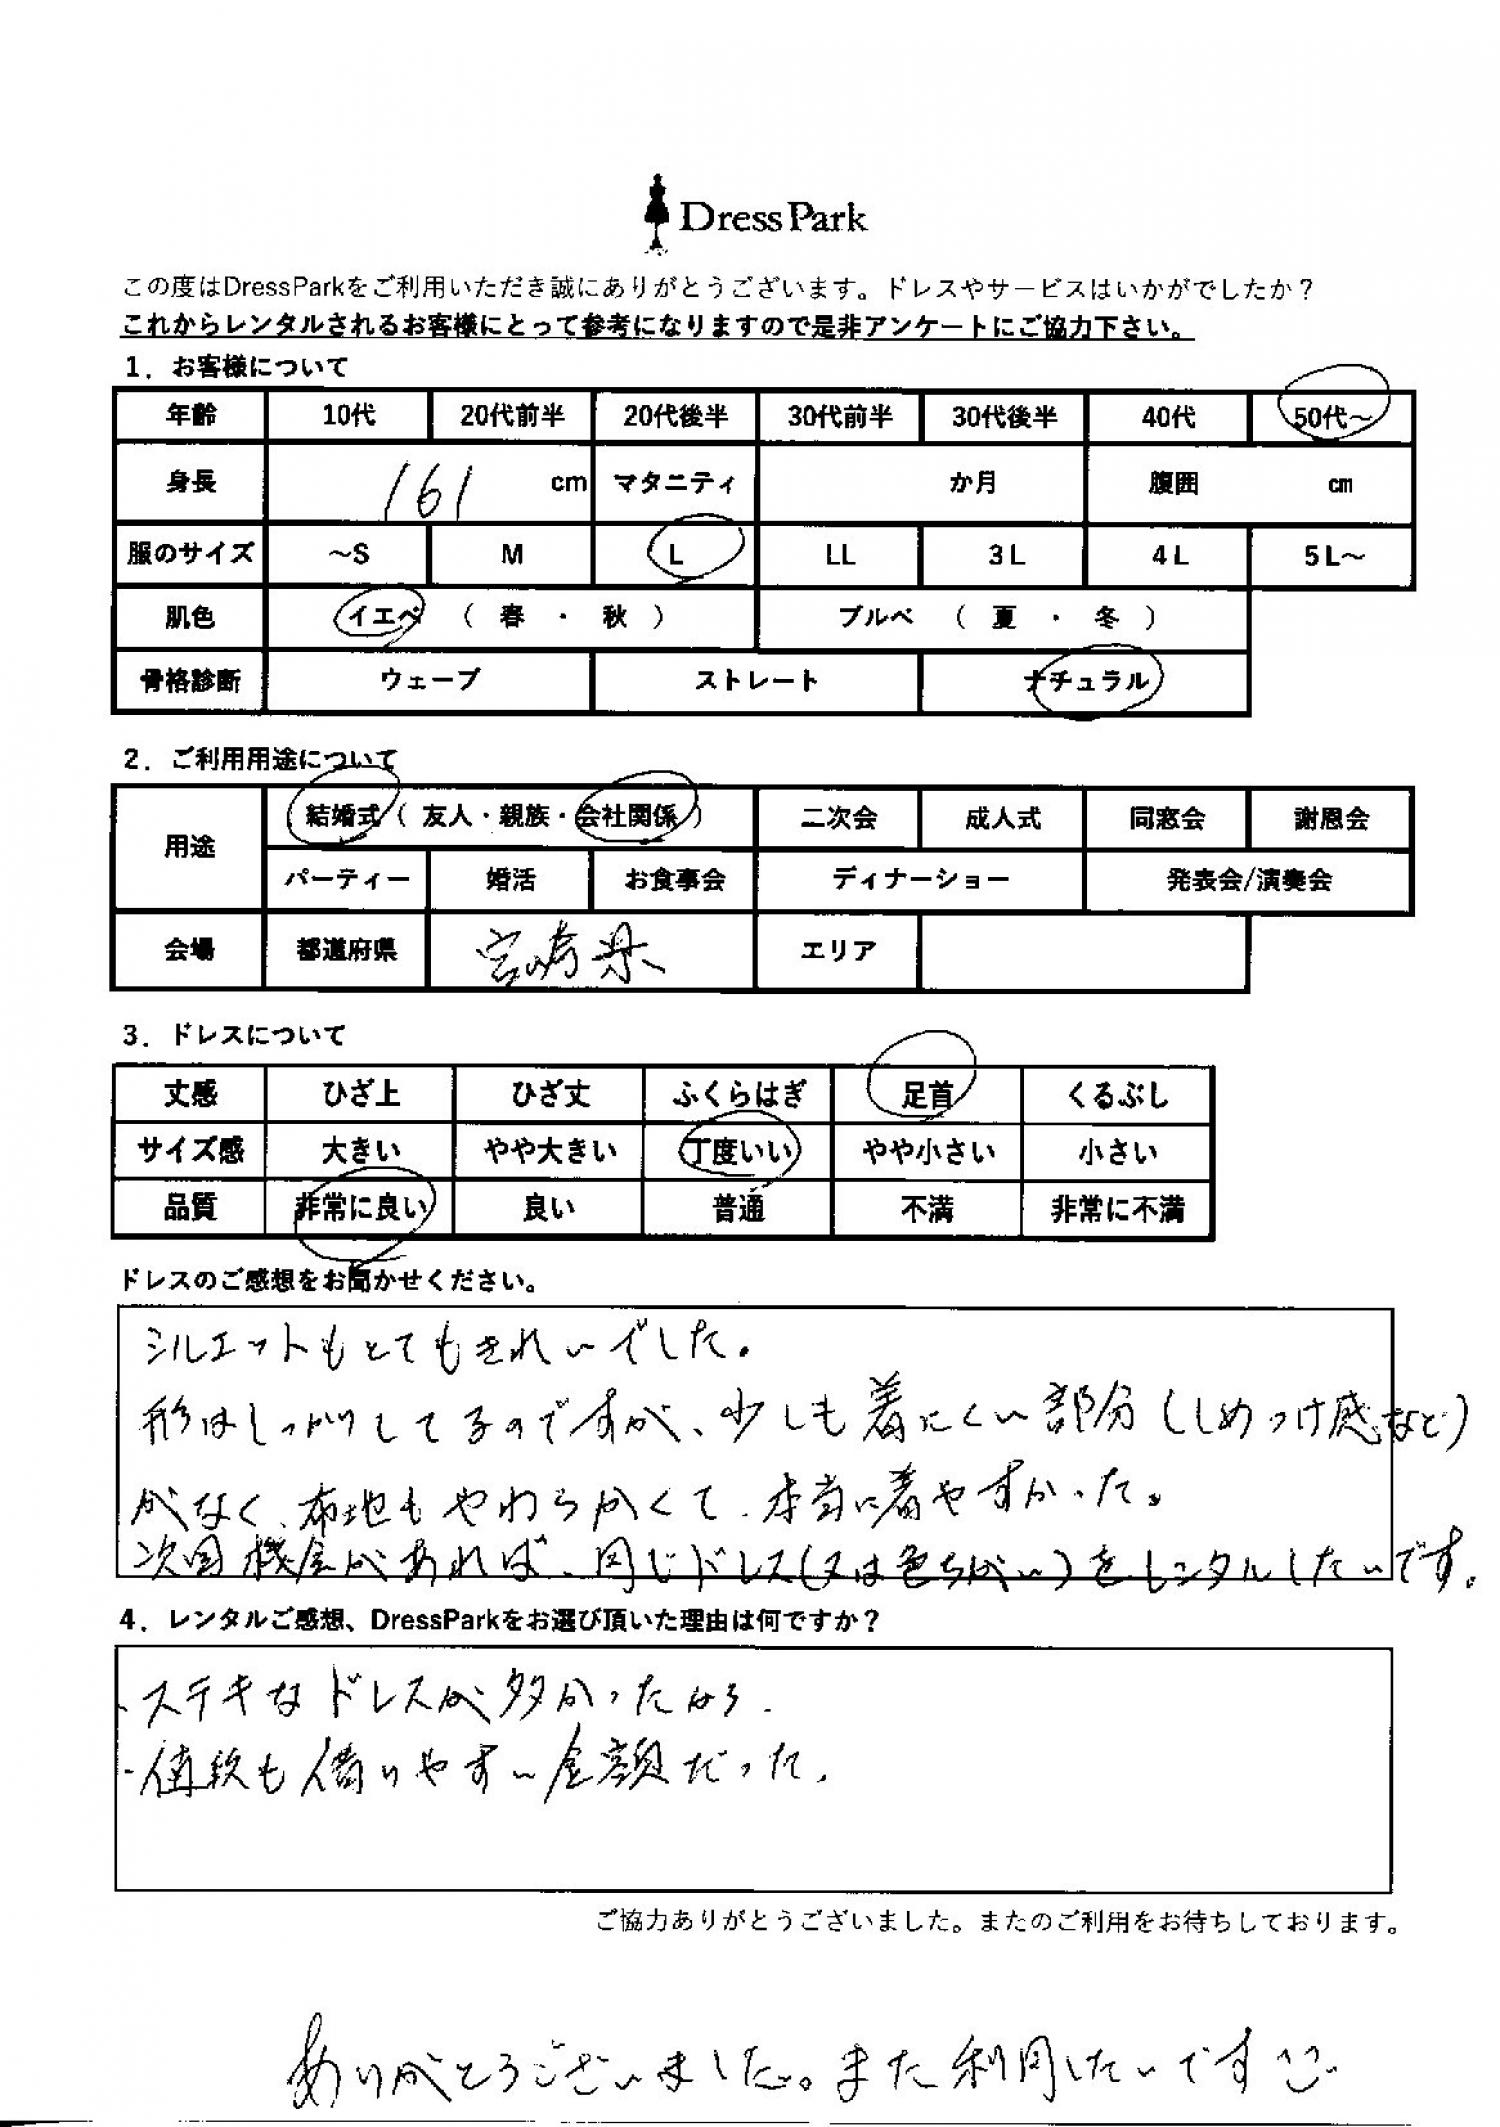 DressPark
この度はDressParkをご利用いただき誠にありがとうございます。ドレスやサービスはいかがでしたか？
これからレンタルされるお客様にとって参考になりますので是非アンケートにご協力下さい。
1．お客様について
年齢 10代 20代前半 20代後半 30代前半 30代後半 40代 50代～
身長 161 cm マタニティ か月 腹囲 cm
服のサイズ ～S M L LL 3L 4L 5L～
肌色 イエベ （ 春 ・ 秋 ） ブルベ （ 夏 ・ 冬 ）
骨格診断 ウェーブ ストレート ナチュラル
2．ご利用用途について
用途 結婚式（ 友人・親族・会社関係 ） 二次会 成人式 同窓会 謝恩会
パーティー 婚活 お食事会 ディナーショー 発表会/演奏会
会場 都道府県 宮崎県 エリア
3．ドレスについて
丈感 ひざ上 ひざ丈 ふくらはぎ 足首 くるぶし
サイズ感 大きい やや大きい 丁度いい やや小さい 小さい
品質 非常に良い 良い 普通 不満 非常に不満
ドレスのご感想をお聞かせください。
シルエットもとてもきれいでした。
形はしっかりしてるのですが、少しも着にくい部分（しめつけ感など）
がなく、布地もやわらかくて、本当に着やすかった。
次回機会があれば、同じドレス（又は色ちがい）をレンタルしたいです。
4．レンタルご感想、DressParkをお選び頂いた理由は何ですか？
・ステキなドレスが多かったから.
・値段も借りやすい金額だった.
ご協力ありがとうございました。またのご利用をお待ちしております。
ありがとうございました。また利用したいです